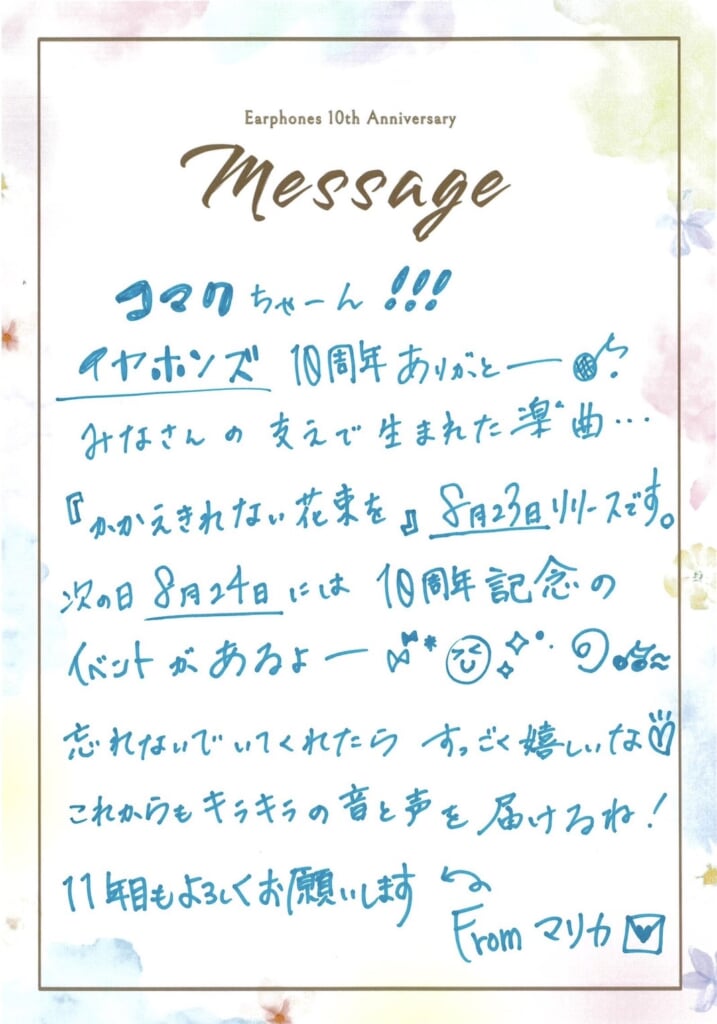 Earphones 10th Anniversary
Message
コマクちゃーん!!!
イヤホンズ 10周年ありがとー
みなさんの支えで生まれた楽曲…
『かかえきれない花束を』8月23日リリースです。
次の日8月24日には10周年記念の
イベントがあるよー
忘れないでいてくれたらすっごく嬉しいな
これからもキラキラの音と声を届けるね!
11年目もよろしくお願いします
From マリカ